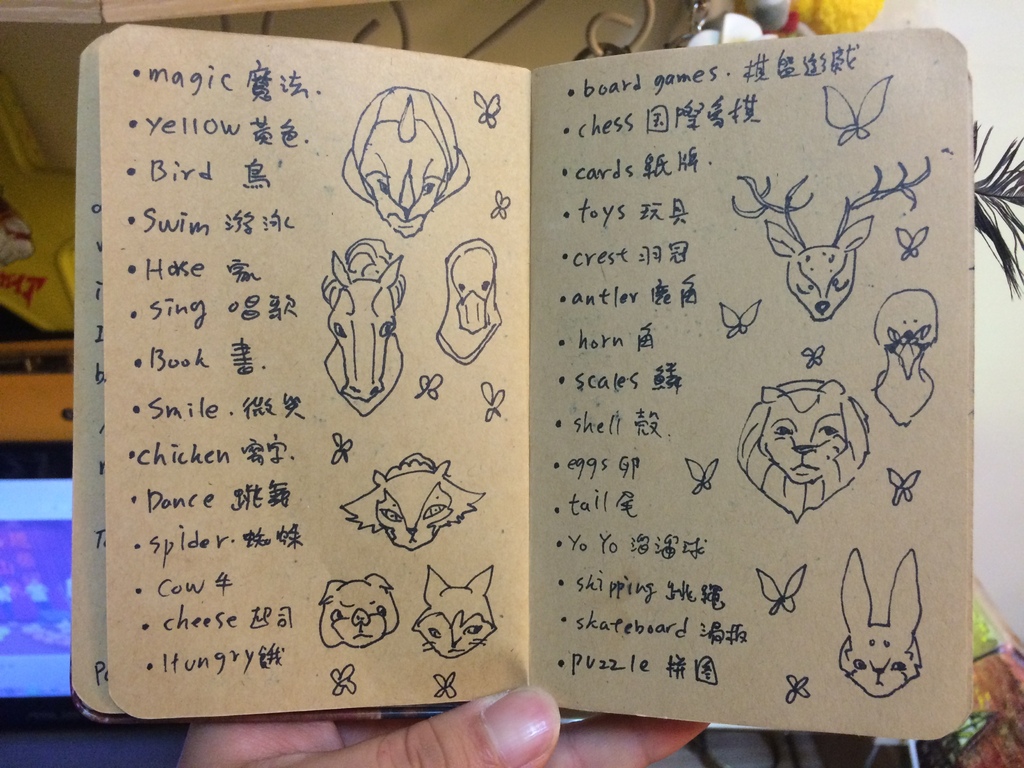 • magic 魔法.
• Yellow 黃色.
• Bird 鳥
• Swim 游泳
• Hose 家
• Sing 唱歌
• Book 書.
• Smile. 微笑
• chicken
• Dance 跳舞
• spider. 蜘蛛
• cow 牛
• cheese 起司
• Hungry 餓
• board games. 棋盤遊戲
• chess 国際象棋
• cards 紙牌.
• toys 玩具
• crest 羽冠
• antler 鹿角
• horn 角
• scales 鱗
• shell 殼.
• eggs 卵
• tail 尾
• Yo Yo 溜溜球
• skipping 跳繩
• skateboard 滑板
• puzzle 拼图